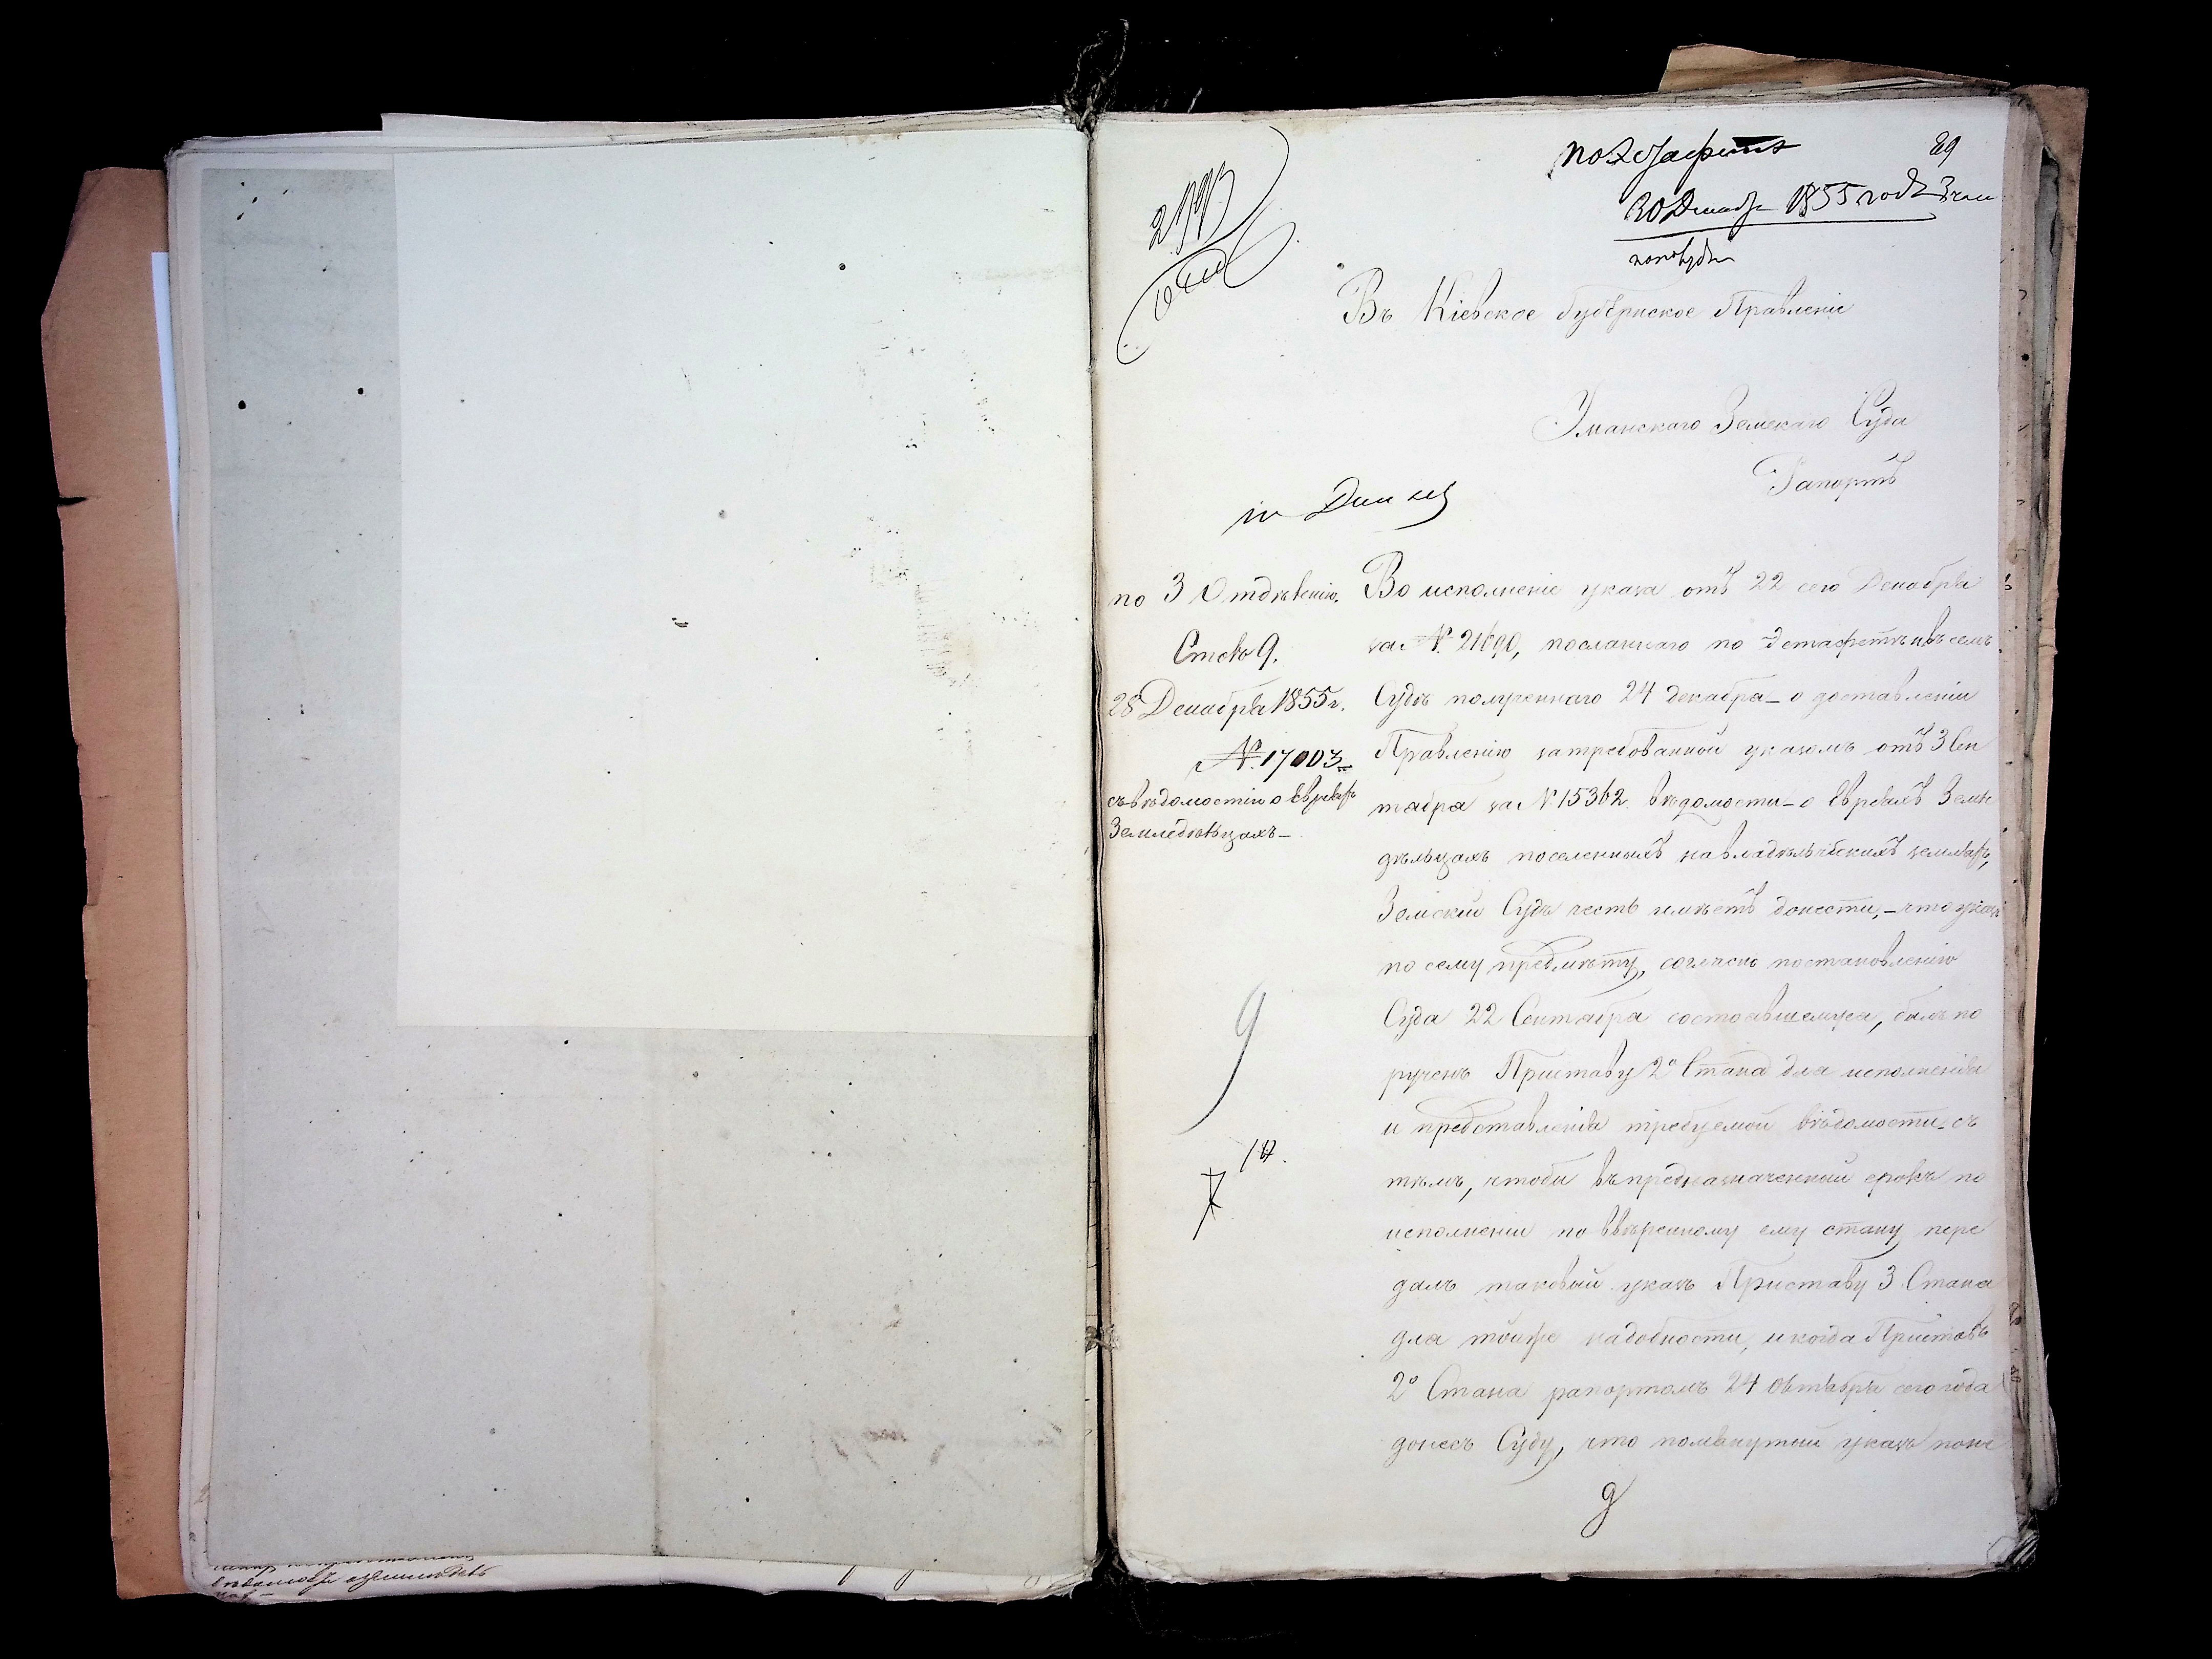 по Эстафетѣ
29
30 Декабр 1855 года
Въ Кіевское Губернское Правленіе
Уманскаго Земскаго Суда
Рапортъ
по 3 Отдѣленію.
Столъ 9.
28 Декабря 1855 г.
№ 17003
съ вѣдомостію о Евреяхъ
Земледѣльцахъ –
9
Во исполненіе указа отъ 22 сего Декабря
за № 21690, посланнаго по Эстафетѣ и въ семъ
Судѣ полученнаго 24 декабря – о доставленіи
Правленію затребованной указомъ отъ 3 Сен
тября за № 15362 вѣдомости – о Евреяхъ Земле
дѣльцахъ поселенныхъ на владѣльческихъ земляхъ,
Земскій Судъ честь имѣетъ донести, – что указъ
по сему предмѣту, согласно постановленію
Суда 22 Сентября состоявшемуся, былъ по
рученъ Приставу 2º Стана для исполненія
и представленія требуемой вѣдомости – съ
тѣмъ, чтобы въ предназначенный срокъ по
исполненіи по ввѣренному ему стану пере
далъ таковый указъ Приставу 3 Стана
для тойже надобности, и когда Приставъ
2º Стана рапортомъ 24 Октября сего года
донесъ Суду, что помянутый указъ